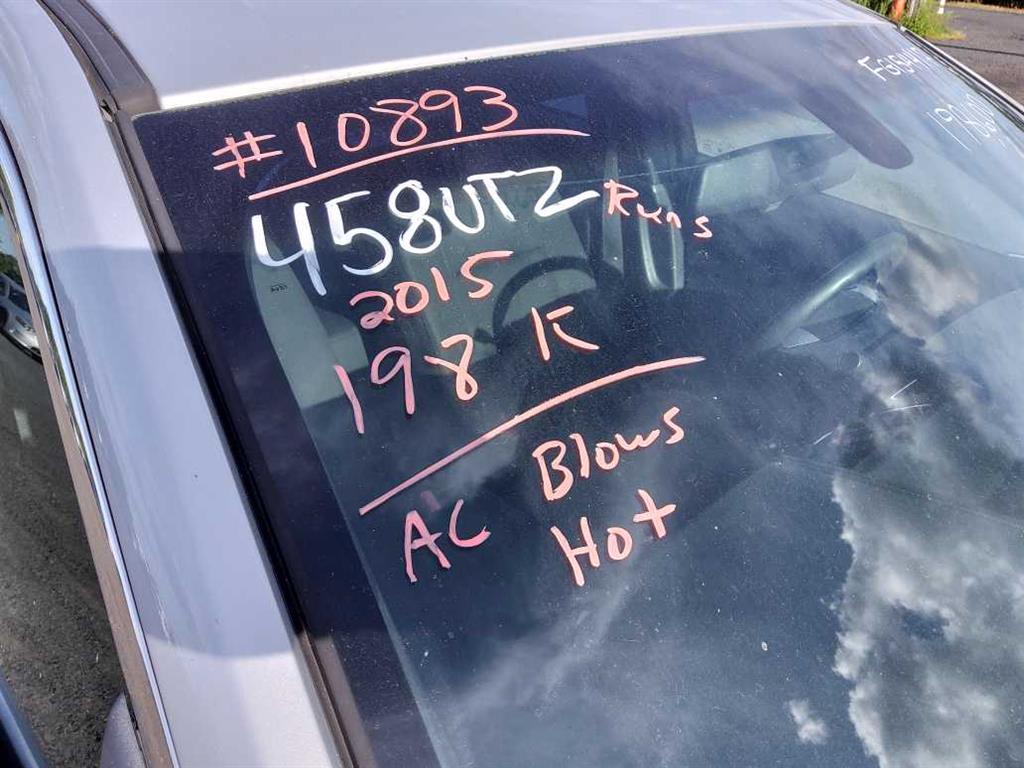 #10893
458UTZ Runs
2015
198 K
AC Blows
Hot